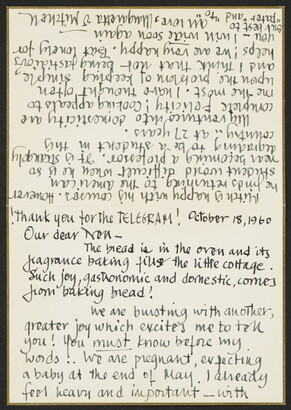 ! Thank you for the TELEGRAM! October 18, 1960
Our dear Nen —
The bread is in the oven and its
fragrance baking fills the little cottage.
Such joy, gastronomic and domestic, comes
from baking bread!
We are bursting with another,
greater joy which excites me to tell
you! You must know before my
words!.. We are pregnant, expecting
a baby at the end of May. I already
feel heavy and important — with
is happy with his courses. However
he finds returning to the American
student world difficult when he is so
near becoming a professor. It is strangely
degrading to be a student in this
country — at 27 years.
My venture into domesticity are
complete felicity! Cooking appeals to
me the most. I have thought often
upon the problem of keeping simple,
and I think that not being fastidious
helps! We are very happy. But lonely for
you — I will soon again
all love Margaretta Mitchell
best to
"and"